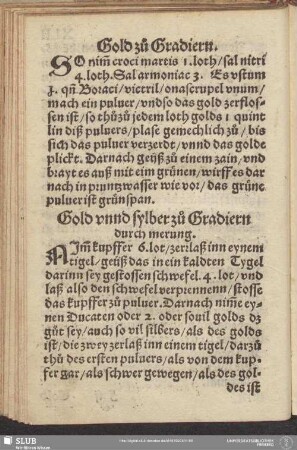 Gold zů Gradiern.
SO nim̃ croci martis 1. loth/ sal nitri
4. loth. Sal armoniac 3. Es vstum
1. qñ Boraci/ victril/ ona scrupel vnum/
mach ein puluer/ vnd so das gold zerflos-
sen ist/ so thů zů jedem loth golds 1 quint
lin diß puluers/ plase gemechlich zů/ bis
sich das puluer verzerdt/ vnnd das golde
plickt. Darnach geüß zů einem zain/ vnd
biayt es auß mit eim grünen/ wirff es dar
nach in pruntzwasser wie vor/ das grüne
puluer ist grünspan.
Gold vnnd sylber zů Gradiern
durch merung.
NJm̃ kupffer 6. lot/ zerlaß inn eynem
tigel/ geüß das in ein kaldten Tygel
darinn sey gestossen schwefel. 4. lot/ vnd
laß also den schwefel verprennenn/ stosse
das kupffer zů puluer. Darnach nim̃e ey-
nen Ducaten oder 2. oder souil golds dz
gůt sey/ auch so vil silbers/ als des golds
ist/ die zwey zerlaß inn einem tigel/ darzů
thů des ersten puluers/ als von dem kup-
fer gar/ als schwer gewegen/ als des gol-
des ist
SLUB
Wir führen Wissen.